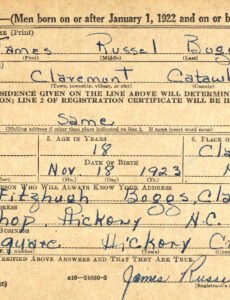 —(Men born on or after January 1, 1922 and on or b
ME (Print)
James Russel Bogg
(First) (Middle) (Last)
Claremont Cataw
(Town, township, village, or city)
ESIDENCE GIVEN ON THE LINE ABOVE WILL DETERMIN
ON; LINE 2 OF REGISTRATION CERTIFICATE WILL BE I
Same
(Mailing address if other than place indicated on line 2. If same insert word same)
5. AGE IN YEARS
6. PLACE O
18
Cla
DATE OF BIRTH
Nov. 18 1923
N
RSON WHO WILL ALWAYS KNOW YOUR ADDRESS
Fitzhugh Boggs, Cla
hop, Hickory N.C.
quare Hickory C
ERIFIED ABOVE ANSWERS AND THAT THEY ARE TRUE.
e16—21630-2
James Russe